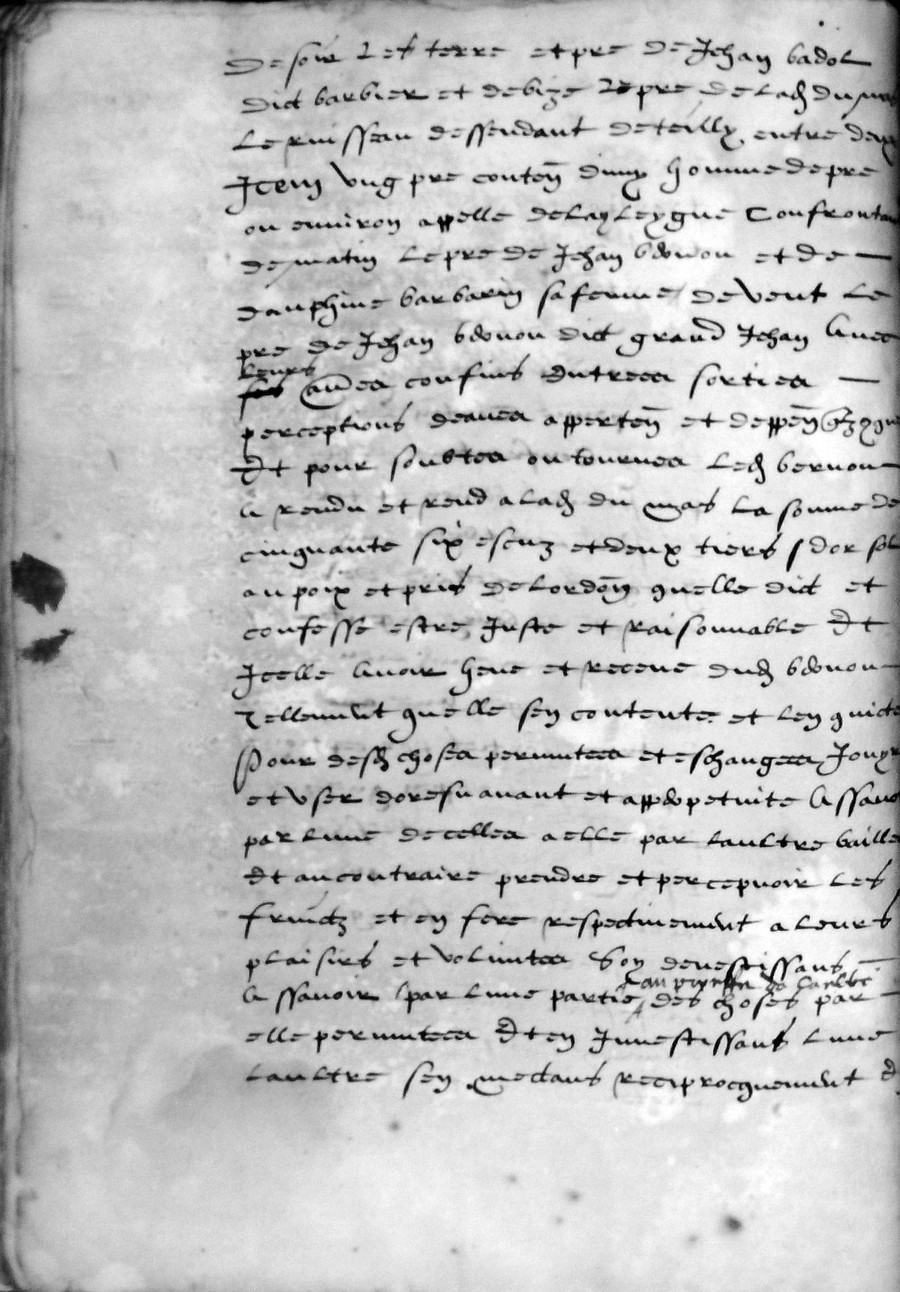 De soir les terre et pre de Jehan badol
dict barbier et de bize le pre de lad du mas
Le ruisseau dessendant de teilly entre deux
Item ung pre conten dung homme de pre
ou environ appelle de Layleygue Confrontant
de matin le pre de Jehan bernon et de
dauphine barbarin sa femme de vent le
pre de Jehan bernon dict grand Jehan Avec
leurs
ses autres confins entrees sorties
perceptions deaues apperten et deppen qzqne
Et pour soubtes ou tournes led bernon
A rendu et rend a lad du mas la somme de
cinquante six escuz et deux tiers dor sol
au poix et pris de lordon quelle dict et
confesse estre Juste et raisonnable Et
Jcelle Avoir heue et receue dud bernon
Tellement quelle sen contente et len quicte
Pour desd choses permutees et eschangees Jouyr
et user doresnavant et a pperpetuite Assavoir
par lune de celles a elle par laultre baillees
Et au contraire prendre et percepvoir les
fruictz et en fere respectivement a leurs
plaisirs et voluntes Soy devestissans
Assavoir par lune partie des choses par
elle permutees Et en Jnvestissans lune
laultre sen mectans reciprocquement